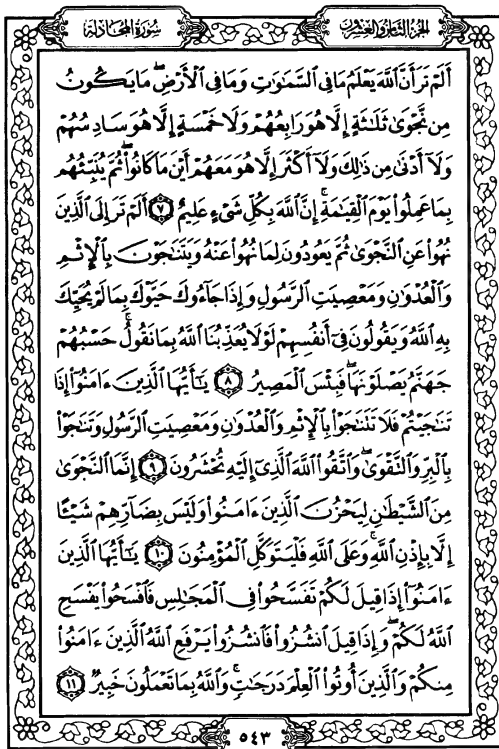 سُورَةُ المُجَادلَة
الجُزْءُ الثَّامِنُ وَالعِشْرُونَ
أَلَمْ تَرَ أَنَّ ٱللَّهَ يَعْلَمُ مَا فِى ٱلسَّمَٰوَٰتِ وَمَا فِى ٱلْأَرْضِ ۖ مَا يَكُونُ
مِن نَّجْوَىٰ ثَلَٰثَةٍ إِلَّا هُوَ رَابِعُهُمْ وَلَا خَمْسَةٍ إِلَّا هُوَ سَادِسُهُمْ
وَلَآ أَدْنَىٰ مِن ذَٰلِكَ وَلَآ أَكْثَرَ إِلَّا هُوَ مَعَهُمْ أَيْنَ مَا كَانُوا۟ ۖ ثُمَّ يُنَبِّئُهُم
بِمَا عَمِلُوا۟ يَوْمَ ٱلْقِيَٰمَةِ ۚ إِنَّ ٱللَّهَ بِكُلِّ شَىْءٍ عَلِيمٌ ٧ أَلَمْ تَرَ إِلَى ٱلَّذِينَ
نُهُوا۟ عَنِ ٱلنَّجْوَىٰ ثُمَّ يَعُودُونَ لِمَا نُهُوا۟ عَنْهُ وَيَتَنَٰجَوْنَ بِٱلْإِثْمِ
وَٱلْعُدْوَٰنِ وَمَعْصِيَتِ ٱلرَّسُولِ وَإِذَا جَآءُوكَ حَيَّوْكَ بِمَا لَمْ يُحَيِّكَ
بِهِ ٱللَّهُ وَيَقُولُونَ فِىٓ أَنفُسِهِمْ لَوْلَا يُعَذِّبُنَا ٱللَّهُ بِمَا نَقُولُ ۚ حَسْبُهُمْ
جَهَنَّمُ يَصْلَوْنَهَا ۖ فَبِئْسَ ٱلْمَصِيرُ ٨ يَٰٓأَيُّهَا ٱلَّذِينَ ءَامَنُوٓا۟ إِذَا
تَنَٰجَيْتُمْ فَلَا تَتَنَٰجَوْا۟ بِٱلْإِثْمِ وَٱلْعُدْوَٰنِ وَمَعْصِيَتِ ٱلرَّسُولِ وَتَنَٰجَوْا۟
بِٱلْبِرِّ وَٱلتَّقْوَىٰ ۖ وَٱتَّقُوا۟ ٱللَّهَ ٱلَّذِىٓ إِلَيْهِ تُحْشَرُونَ ٩ إِنَّمَا ٱلنَّجْوَىٰ
مِنَ ٱلشَّيْطَٰنِ لِيَحْزُنَ ٱلَّذِينَ ءَامَنُوا۟ وَلَيْسَ بِضَآرِّهِمْ شَيْـًٔا
إِلَّا بِإِذْنِ ٱللَّهِ ۚ وَعَلَى ٱللَّهِ فَلْيَتَوَكَّلِ ٱلْمُؤْمِنُونَ ١٠ يَٰٓأَيُّهَا ٱلَّذِينَ
ءَامَنُوٓا۟ إِذَا قِيلَ لَكُمْ تَفَسَّحُوا۟ فِى ٱلْمَجَٰلِسِ فَٱفْسَحُوا۟ يَفْسَحِ
ٱللَّهُ لَكُمْ ۖ وَإِذَا قِيلَ ٱنشُزُوا۟ فَٱنشُزُوا۟ يَرْفَعِ ٱللَّهُ ٱلَّذِينَ ءَامَنُوا۟
مِنكُمْ وَٱلَّذِينَ أُوتُوا۟ ٱلْعِلْمَ دَرَجَٰتٍ ۚ وَٱللَّهُ بِمَا تَعْمَلُونَ خَبِيرٌ ١١
٥٤٣